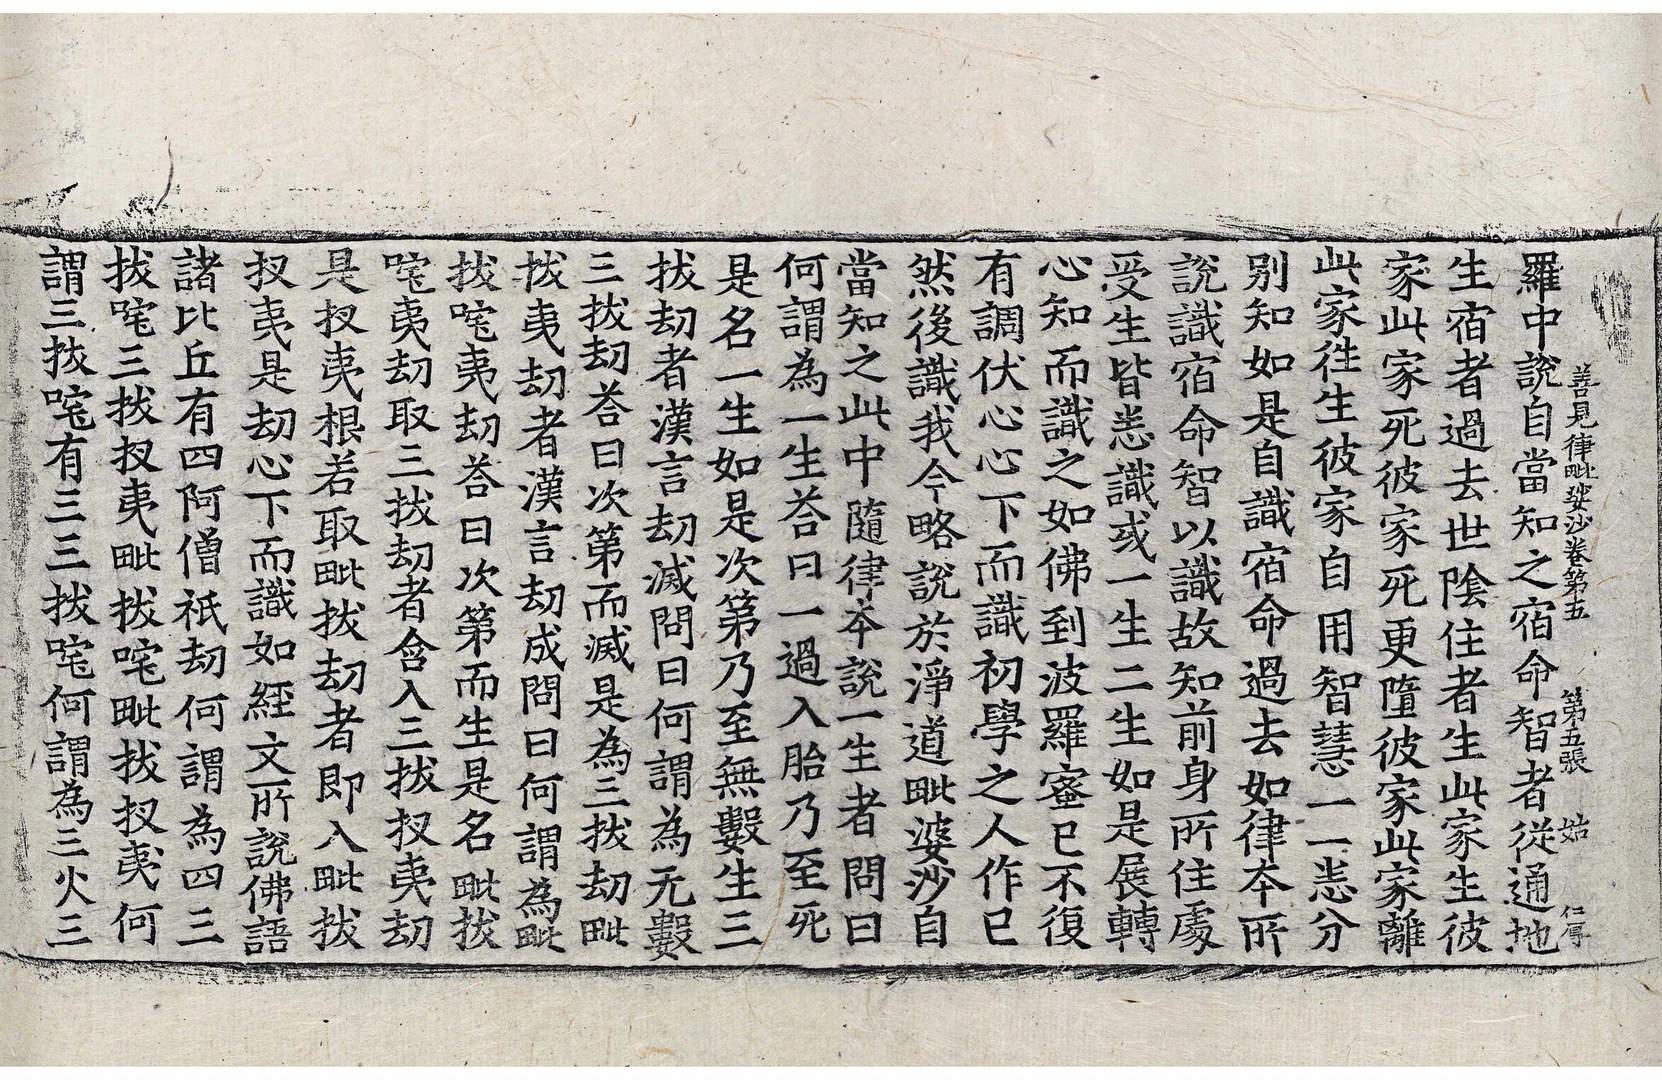 善見律毗婆沙卷第五 第五張 姑 仁厚
羅中說自當知之宿命智者從通地
生宿者過去世陰住者生此家生彼
家此家死彼家死更墮彼家此家離
此家徃生彼家自用智慧一一悉分
別知如是自識宿命過去如律本所
說識宿命智以識故知前身所住處
受生皆悉識或一生二生如是展轉
心知而識之如佛到波羅蜜已不復
有調伏心心下而識初學之人作已
然後識我今略說於淨道毗婆沙自
當知之此中隨律本說一生者問曰
何謂為一生荅曰一過入胎乃至死
是名一生如是次第乃至無數生三
拔劫者漢言劫滅問曰何謂為无數
三拔劫荅曰次第而滅是為三拔劫毗
拔夷劫者漢言劫成問曰何謂為毗
拔咤夷劫荅曰次第而生是名毗拔
咤夷劫取三拔劫者含入三拔扠夷劫
是扠夷根若取毗拔劫者即入毗拔
扠夷是劫心下而識如經文所說佛語
諸比丘有四阿僧祇劫何謂為四三
拔咤三拔扠夷毗拔咤毗拔扠夷何
謂三拔咤有三三拔咤何謂為三火三